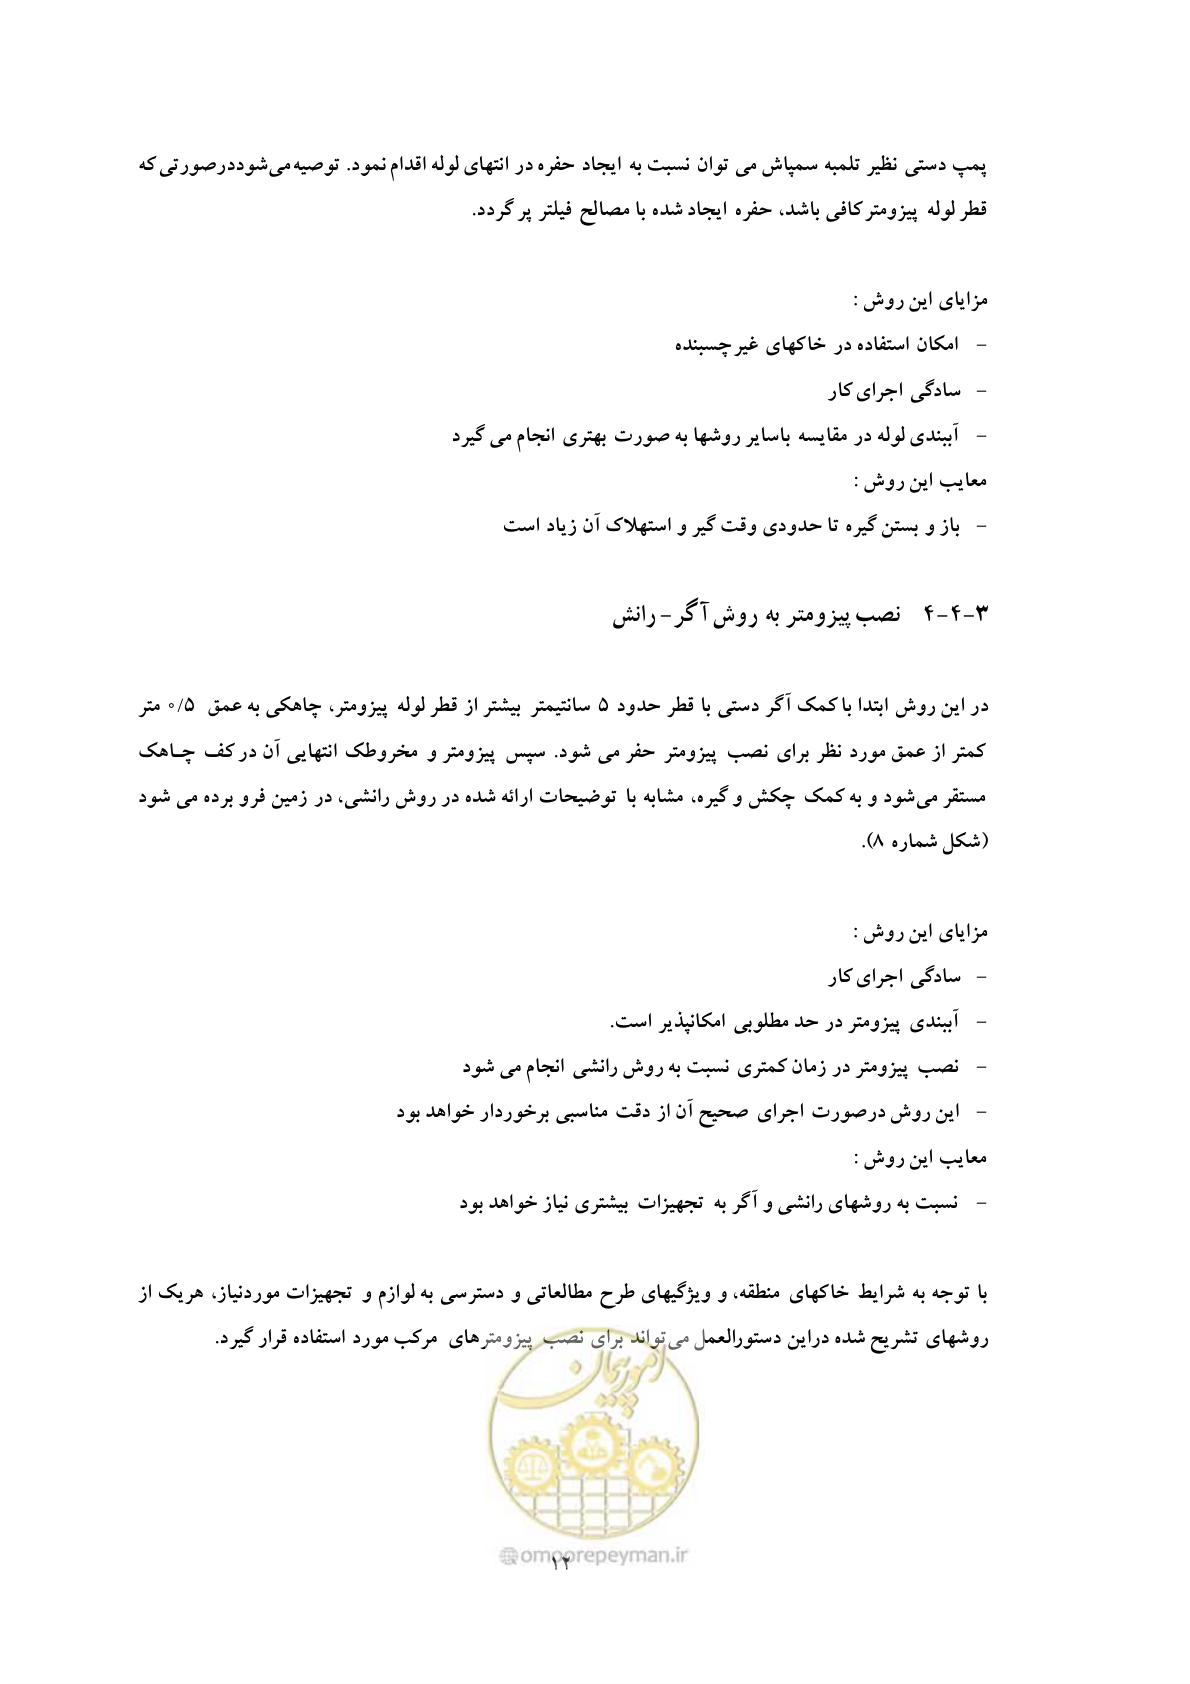 پمپ دستی نظیر تلمبه سمپاش می توان نسبت به ایجاد حفره در انتهای لوله اقدام نمود. توصیه می‌شوددرصورتی که
قطر لوله پیزومتر کافی باشد، حفره ایجاد شده با مصالح فیلتر پر گردد.
مزایای این روش :
- امکان استفاده در خاکهای غیر چسبنده
- سادگی اجرای کار
- آببندی لوله در مقایسه باسایر روشها به صورت بهتری انجام می گیرد
معایب این روش :
- باز و بستن گیره تا حدودی وقت گیر و استهلاک آن زیاد است
۳-۴-۴ نصب پیزومتر به روش آگر - رانش
در این روش ابتدا با کمک آگر دستی با قطر حدود ۵ سانتیمتر بیشتر از قطر لوله پیزومتر، چاهکی به عمق ۰/۵ متر
کمتر از عمق مورد نظر برای نصب پیزومتر حفر می شود. سپس پیزومتر و مخروطک انتهایی آن در کف چـاهک
مستقر می‌شود و به کمک چکش و گیره، مشابه با توضیحات ارائه شده در روش رانشی، در زمین فرو برده می شود
(شکل شماره ۸).
مزایای این روش :
- سادگی اجرای کار
- آببندی پیزومتر در حد مطلوبی امکانپذیر است.
- نصب پیزومتر در زمان کمتری نسبت به روش رانشی انجام می شود
- این روش درصورت اجرای صحیح آن از دقت مناسبی برخوردار خواهد بود
معایب این روش :
- نسبت به روشهای رانشی و آگر به تجهیزات بیشتری نیاز خواهد بود
با توجه به شرایط خاکهای منطقه، و ویژگیهای طرح مطالعاتی و دسترسی به لوازم و تجهیزات موردنیاز، هریک از
روشهای تشریح شده دراین دستورالعمل می‌تواند برای نصب پیزومترهای مرکب مورد استفاده قرار گیرد.
امور پیمان
@omoorepeyman.ir
۱۲